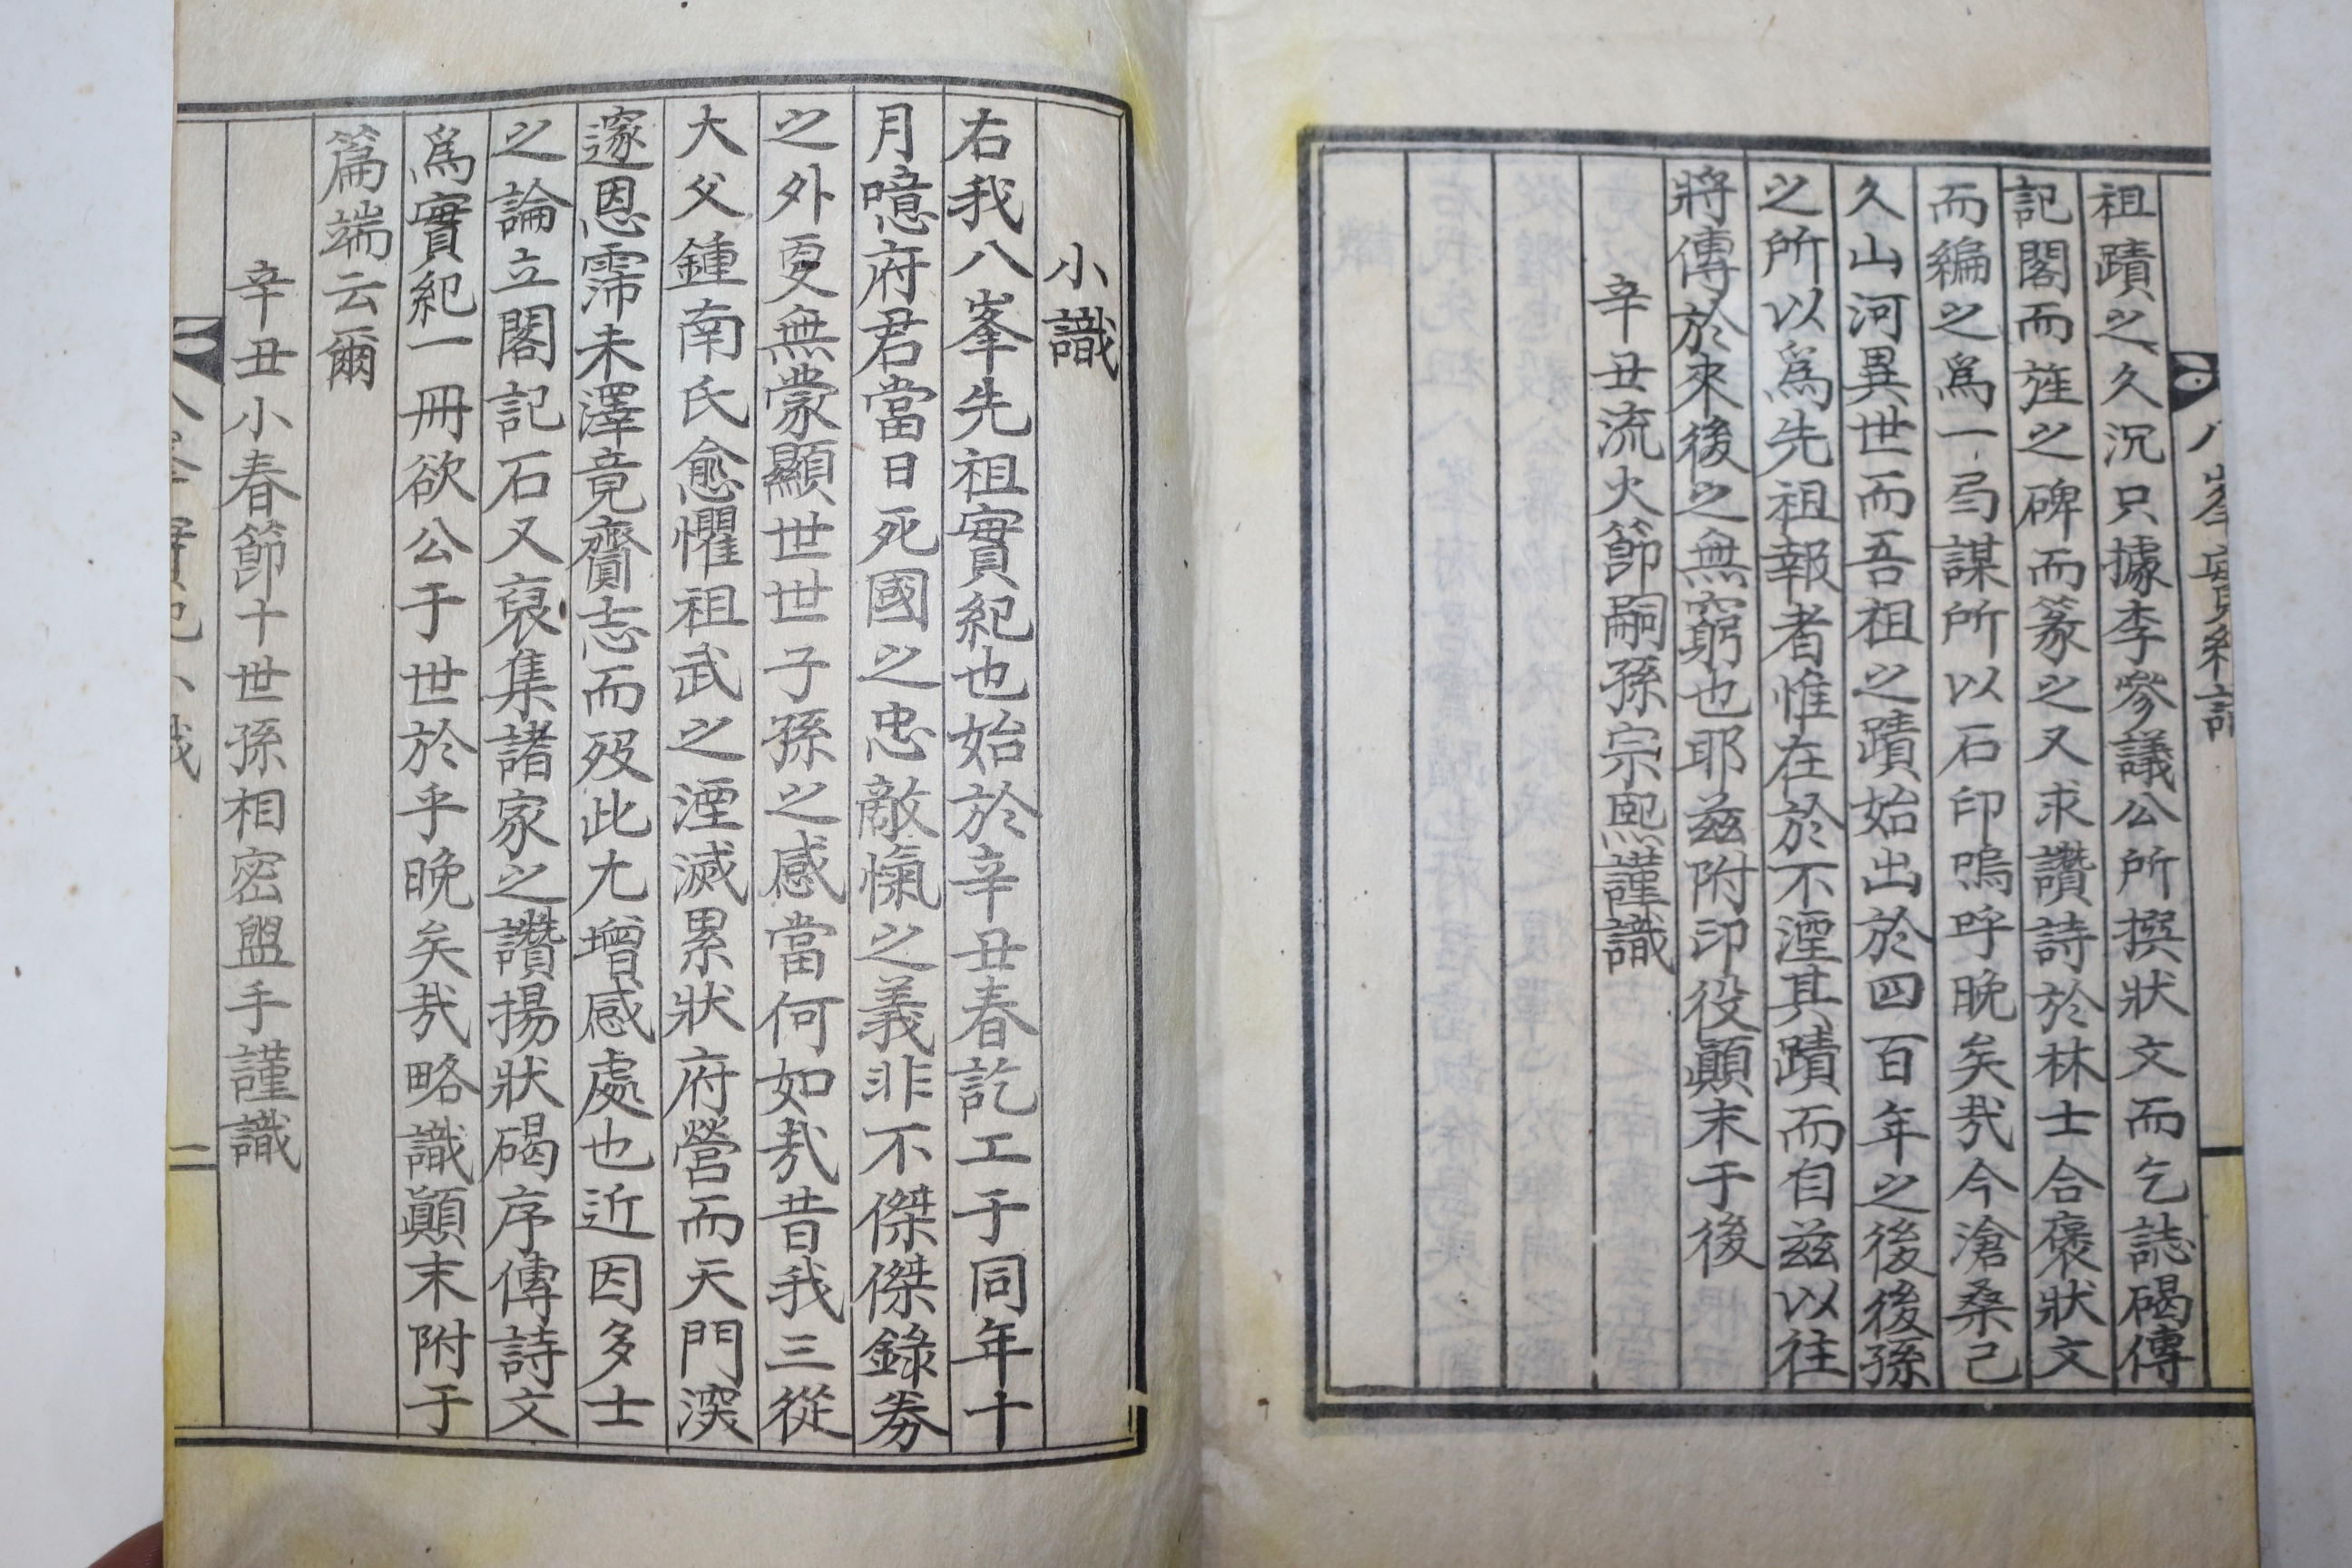 祖蹟之久沉只據李參議公所撰狀文而乞誌碣傳
記閣而旌之碑而篆之又求讚詩於林士合褒狀文
而編之爲一局謀所以石印嗚呼晚矣哉今滄桑已
久山河異世而吾祖之蹟始出於四百年之後後孫
之所以爲先祖報者惟在於不湮其蹟而自玆以往
將傳於來後之無窮也耶玆附印役顚末于後
辛丑流火節嗣孫宗熙謹識
小識
右我八峯先祖實紀也始於辛丑春訖工于同年十
月噫府君當日死國之忠敵愾之義非不傑傑錄券
之外更無蒙顯世世子孫之感當何如哉昔我三從
大父鍾南氏愈懼祖武之湮滅累狀府營而天門深
邃恩霈未澤竟齎志而歿此尤增感處也近因多士
之論立閣記石又裒集諸家之讚揚狀碣序傳詩文
爲實紀一冊欲公于世於乎晚矣哉略識顚末附于
篇端云爾
辛丑小春節十世孫相密盥手謹識
二